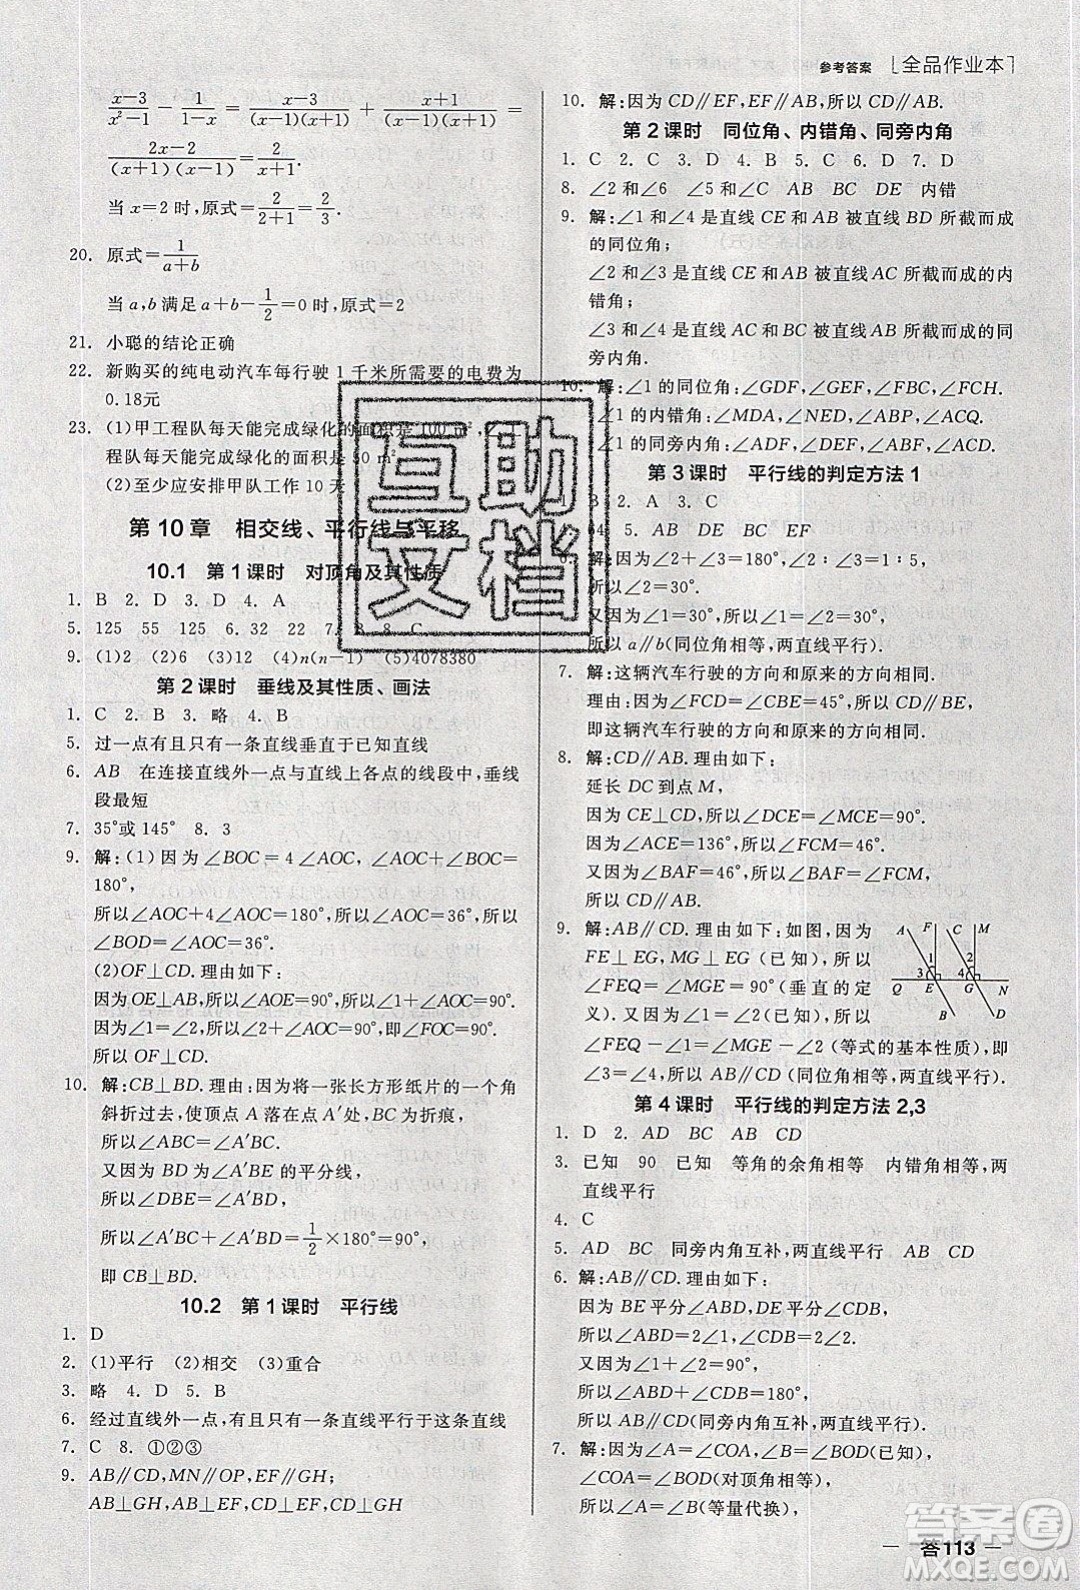 参考答案 [全品作业本]
(x-3)/(x²-1) - 1/(1-x) = (x-3)/((x-1)(x+1)) + (x+1)/((x-1)(x+1)) =
(2x-2)/((x+1)(x-1)) = 2/(x+1).
当 x=2 时,原式=2/(2+1)=2/3.
20. 原式=1/(a+b)
当 a,b 满足 a+b-1/2=0 时,原式=2
21. 小聪的结论正确
22. 新购买的纯电动汽车每行驶 1 千米所需要的电费为
0.18元
23. (1)甲工程队每天能完成绿化的面积是 100 m²,
程队每天能完成绿化的面积是 50 m²
(2)至少应安排甲队工作 10 天
第 10 章 相交线、平行线与平移
10.1 第 1 课时 对顶角及其性质
1. B 2. D 3. D 4. A
5. 125 55 125 6. 32 22 7. B 8. C
9. (1)2 (2)6 (3)12 (4)n(n-1) (5)4078380
第 2 课时 垂线及其性质、画法
1. C 2. B 3. 略 4. B
5. 过一点有且只有一条直线垂直于已知直线
6. AB 在连接直线外一点与直线上各点的线段中,垂线
段最短
7. 35°或 145° 8. 3
9. 解:(1)因为∠BOC=4∠AOC,∠BOC+∠AOC=
180°,
所以∠AOC+4∠AOC=180°,所以∠AOC=36°,所以
∠BOD=∠AOC=36°.
(2)OF⊥CD. 理由如下:
因为 OE⊥AB,所以∠AOE=90°,所以∠1+∠AOC=90°.
因为∠1=∠2,所以∠2+∠AOC=90°,即∠FOC=90°,
所以 OF⊥CD.
10. 解:CB⊥BD. 理由:因为将一张长方形纸片的一个角
斜折过去,使顶点 A 落在点 A′处,BC 为折痕,
所以∠ABC=∠A′BC.
又因为 BD 为∠A′BE 的平分线,
所以∠DBE=∠A′BD,
所以∠A′BC+∠A′BD=1/2×180°=90°,
即 CB⊥BD.
10.2 第 1 课时 平行线
1. D
2. (1)平行 (2)相交 (3)重合
3. 略 4. D 5. B
6. 经过直线外一点,有且只有一条直线平行于这条直线
7. C 8. ①②③
9. AB∥CD,MN∥OP,EF∥GH;
AB⊥GH,AB⊥EF,CD⊥EF,CD⊥GH
10. 解:因为 CD∥EF,EF∥AB,所以 CD∥AB.
第 2 课时 同位角、内错角、同旁内角
1. C 2. C 3. D 4. D 5. C 6. D 7. D
8. ∠2 和∠6 ∠5 和∠C AB BC DE 内错
9. 解:∠1 和∠4 是直线 CE 和 AB 被直线 BD 所截而成
的同位角;
∠2 和∠3 是直线 CE 和 AB 被直线 AC 所截而成的内
错角;
∠3 和∠4 是直线 AC 和 BC 被直线 AB 所截而成的同
旁内角.
10. 解:∠1 的同位角:∠GDF,∠GEF,∠FBC,∠FCH.
∠1 的内错角:∠MDA,∠NED,∠ABP,∠ACQ.
∠1 的同旁内角:∠ADF,∠DEF,∠ABD,∠ACD.
第 3 课时 平行线的判定方法 1
1. B 2. A 3. C
64 5. AB DE BC EF
6. 解:因为∠2+∠3=180°,∠2∶∠3=1∶5,
所以∠2=30°.
因为∠1=30°,所以∠1=∠2,
所以 a∥b(同位角相等,两直线平行).
7. 解:这辆汽车行驶的方向和原来的方向相同.
理由:因为∠FCD=∠FBE=45°,所以 CD∥BE,
即这辆汽车行驶的方向和原来的方向相同.
8. 解:CD∥AB. 理由如下:
延长 DC 到点 M,
因为 CF⊥CE,所以∠DCE=∠MCE=90°.
因为∠ACE=136°,所以∠FCM=46°.
又因为∠BAF=46°,所以∠FCM=∠BAF,
所以 CD∥AB.
9. 解:AB∥CD. 理由如下:如图,因为
FE⊥EG,MG⊥EG(已知),所以
∠FEQ=∠MGE=90°(垂直的定
义). 又因为∠1=∠2(已知),所以
∠FEQ-∠1=∠MGE-∠2(等式的基本性质),即
∠3=∠4,所以 AB∥CD(同位角相等,两直线平行).
A F C M
1 2
3 4
Q E G N
B D
第 4 课时 平行线的判定方法 2,3
1. D 2. AD BC AB CD
3. 已知 90 已知 等角的余角相等 内错角相等,两
直线平行
4. C
5. AD BC 同旁内角互补,两直线平行 AB CD
6. 解:AB∥CD. 理由如下:
因为 BE 平分∠ABD,DE 平分∠CDB,
所以∠ABD=2∠1,∠CDB=2∠2.
又因为∠1+∠2=90°,
所以∠ABD+∠CDB=180°,
所以 AB∥CD(同旁内角互补,两直线平行).
7. 解:因为∠A=∠COA,∠B=∠BOD(已知),
∠COA=∠BOD(对顶角相等),
所以∠A=∠B(等量代换),
互助
文档
答案圈
MXQE.COM
— 答113 —